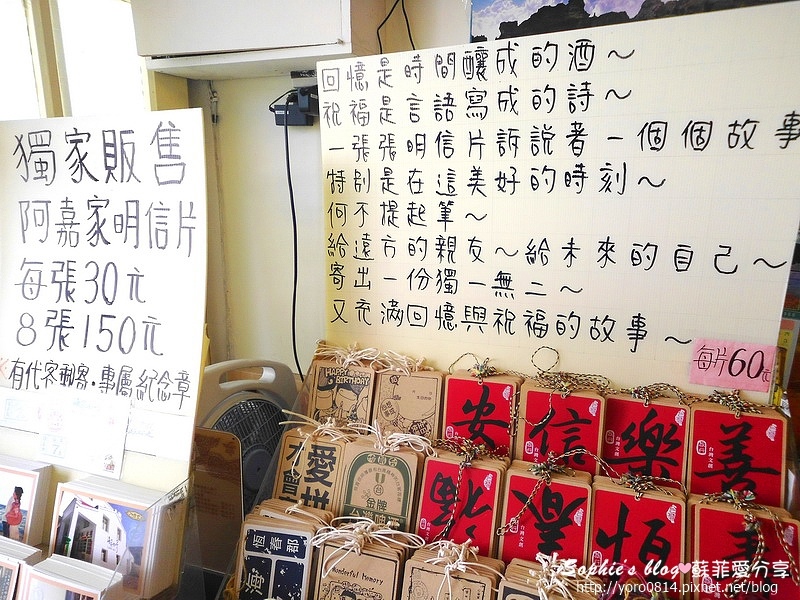 獨家販售
阿嘉家明信片
每張30元
8張150元
有代客郵寄・專屬紀念章
回憶是時間釀成的酒～
祝福是言語寫成的詩～
一張張明信片訴說者一個個故事
特別是在這美好的時刻～
何不提起筆～
給遠方的親友～給未來的自己～
寄出一份獨一無二～
又充滿回憶與祝福的故事～
每片60元
HAPPY BIRTHDAY
安
信
樂
善
愛拼
金牌
恆
恆春郡
海
Wonderful Memory
Sophie's blog♥蘇菲愛分享
http://yoro0814.pixnet.net/blog